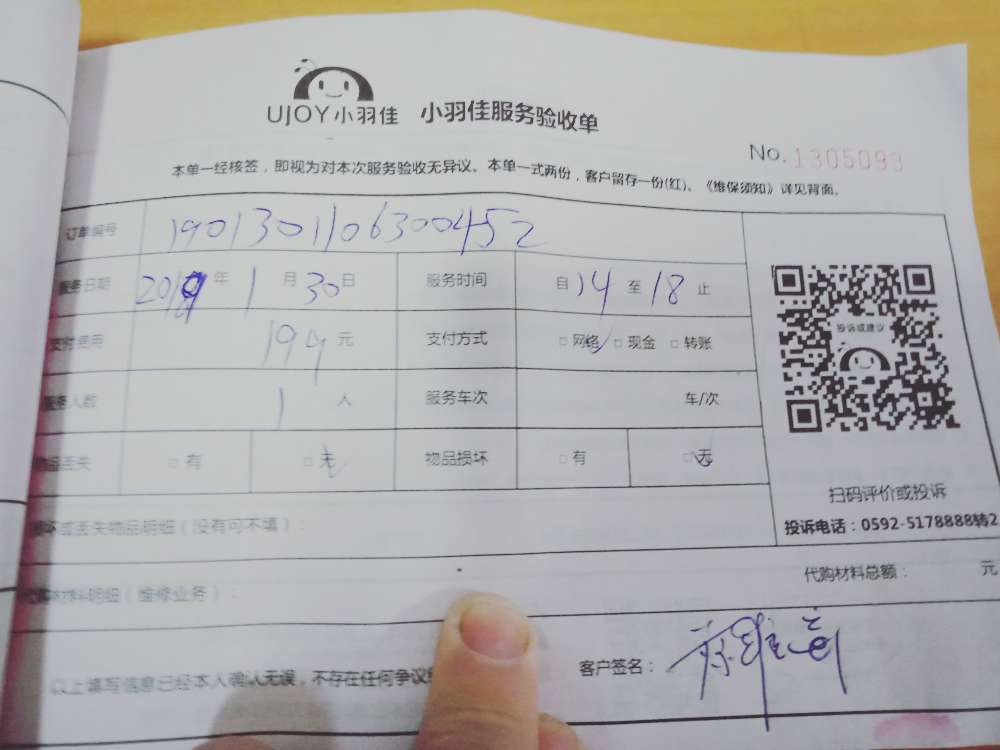 UJOY小羽佳 小羽佳服务验收单
No.1305093
本单一经核签，即视为对本次服务验收无异议。本单一式两份，客户留存一份(红)。《维保须知》详见背面。
订单编号 1901301106300452
服务日期 2019年1月30日 服务时间 自14至18止
支付费用 194元 支付方式 □网络 □现金 □转账
服务人数 1人 服务车次 车/次
物品丢失 □有 □无 物品损坏 □有 □无
投诉或建议
扫码评价或投诉
投诉电话：0592-5178888转2
损坏或丢失物品明细（没有可不填）：
代购材料明细（维修业务）： 代购材料总额： 元
以上填写信息已经本人确认无误，不存在任何争议
客户签名：